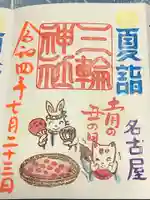 夏詣
名古屋
三輪
神社
土用の
丑の日
令和四年七月二十三日